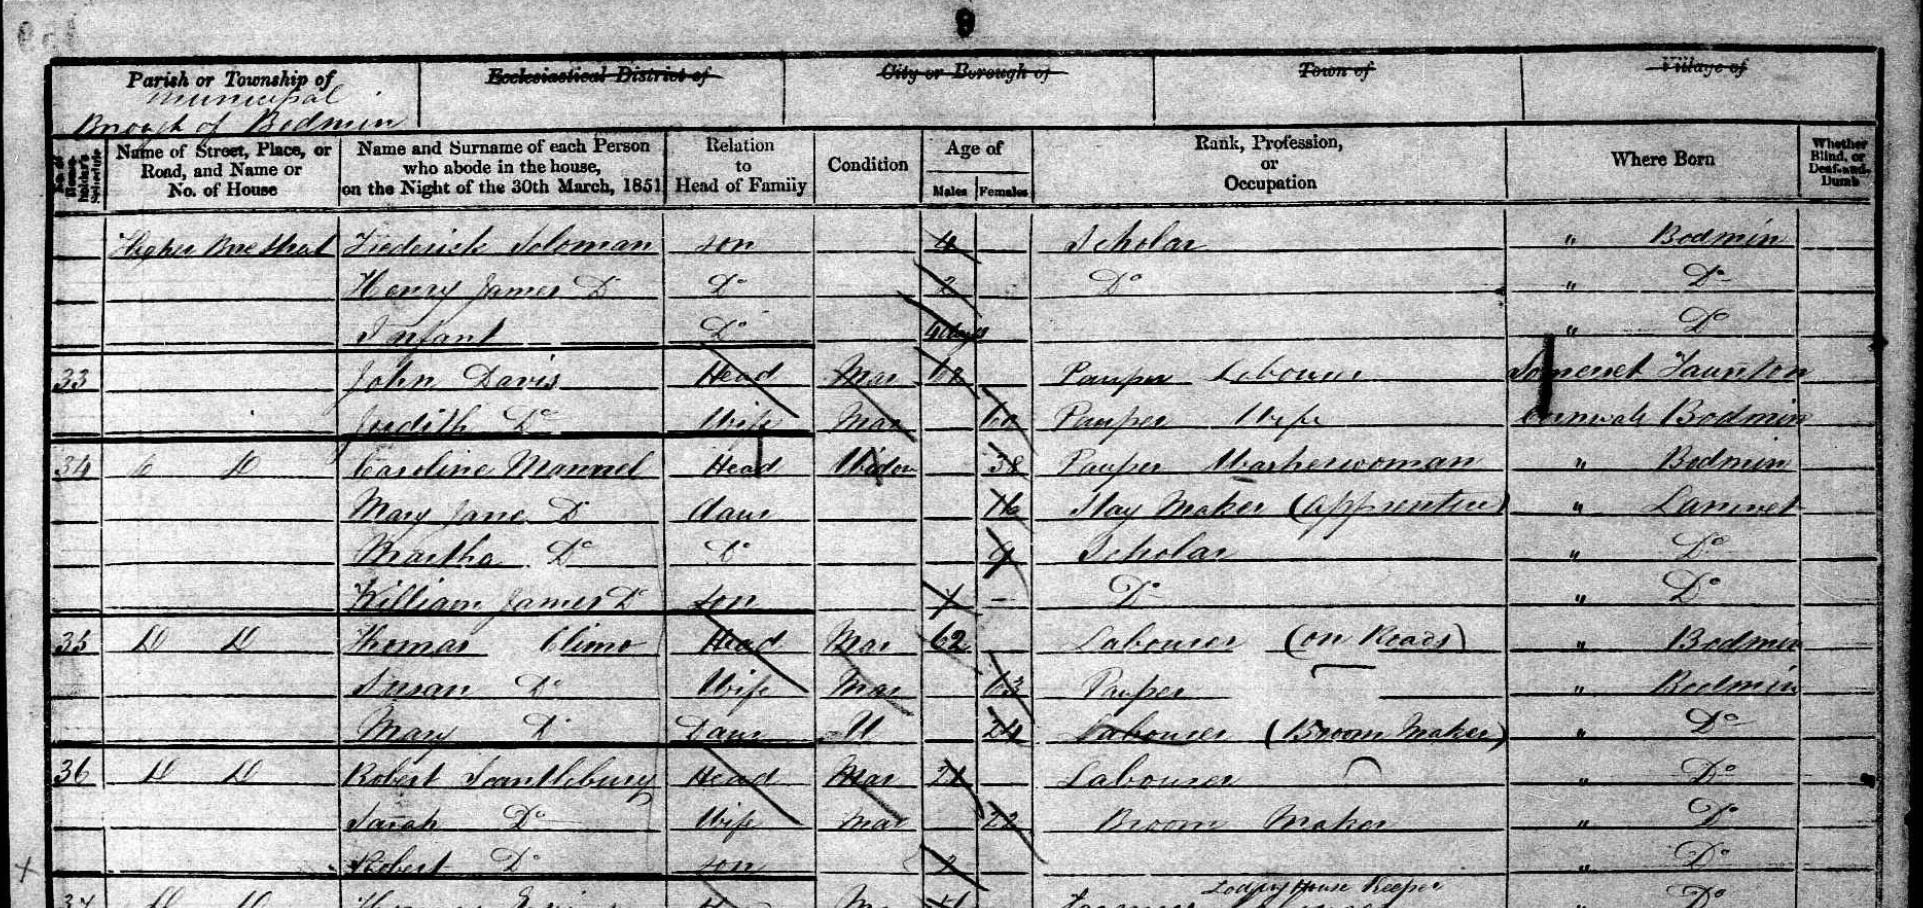 9
Parish or Township of Ecclesiastical District of City or Borough of Town of Village of
Municipal
Borough of Bodmin
No. of House-holder's Schedule
Name of Street, Place, or Road, and Name or No. of House
Name and Surname of each Person who abode in the house, on the Night of the 30th March, 1851
Relation to Head of Family
Condition
Age of
Males Females
Rank, Profession, or Occupation
Where Born
Whether Blind, or Deaf-and-Dumb
Higher Bore Street Frederick Soloman son 4 Scholar " Bodmin
Henry James Do Do 2 Do " Do
Infant Do days " Do
33 John Davis Head Mar 68 Pauper Labourer Somerset Taunton
Judith Do Wife Mar 60 Pauper Wife Cornwall Bodmin
34 D D Caroline Mannel Head Widow 38 Pauper Washerwoman " Bodmin
Mary Jane D Daur 16 Stay Maker (Apprentice) " Lanivet
Martha Do Do 9 Scholar " Do
William James Do son 7 – Do " Do
35 D D Thomas Climo Head Mar 62 Labourer (on Roads) " Bodmin
Susan Do Wife Mar 63 Pauper " Bodmin
Mary D Daur U 24 Labourer (Broom Maker) " Do
36 D D Robert Scantlebury Head Mar 21 Labourer " Do
Sarah Do Wife Mar 22 Broom Maker " Do
Robert Do son " Do
37 D D Lodging House Keeper " Do